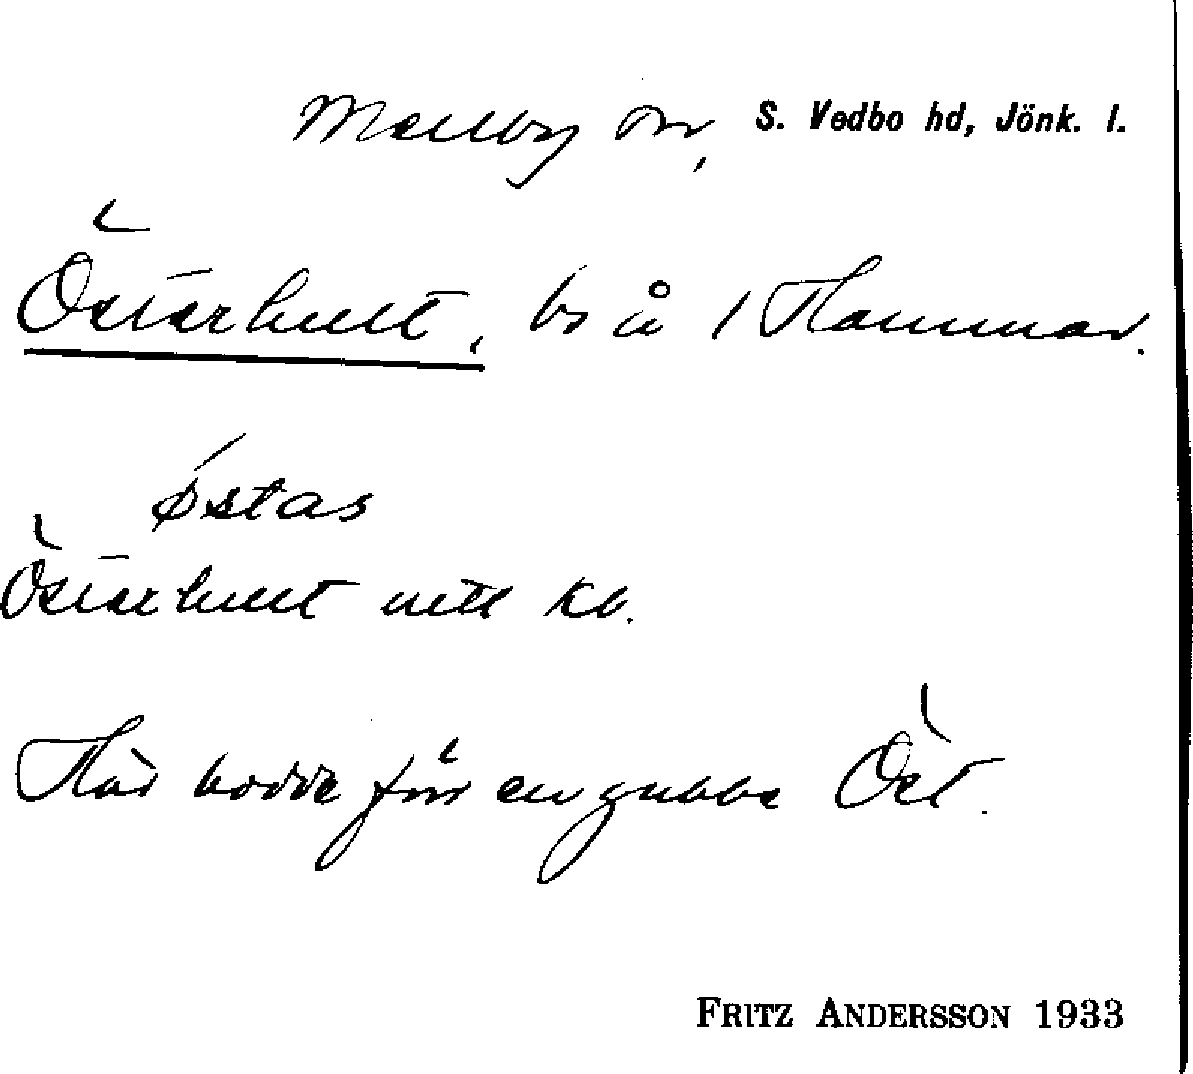 Mellby sn, S. Vedbo hd, Jönk. l.
Österhult, bs å 1 Hammar.
østas
Österhult nills kb.
Här bodde förr en gubbe Öst.
FRITZ ANDERSSON 1933